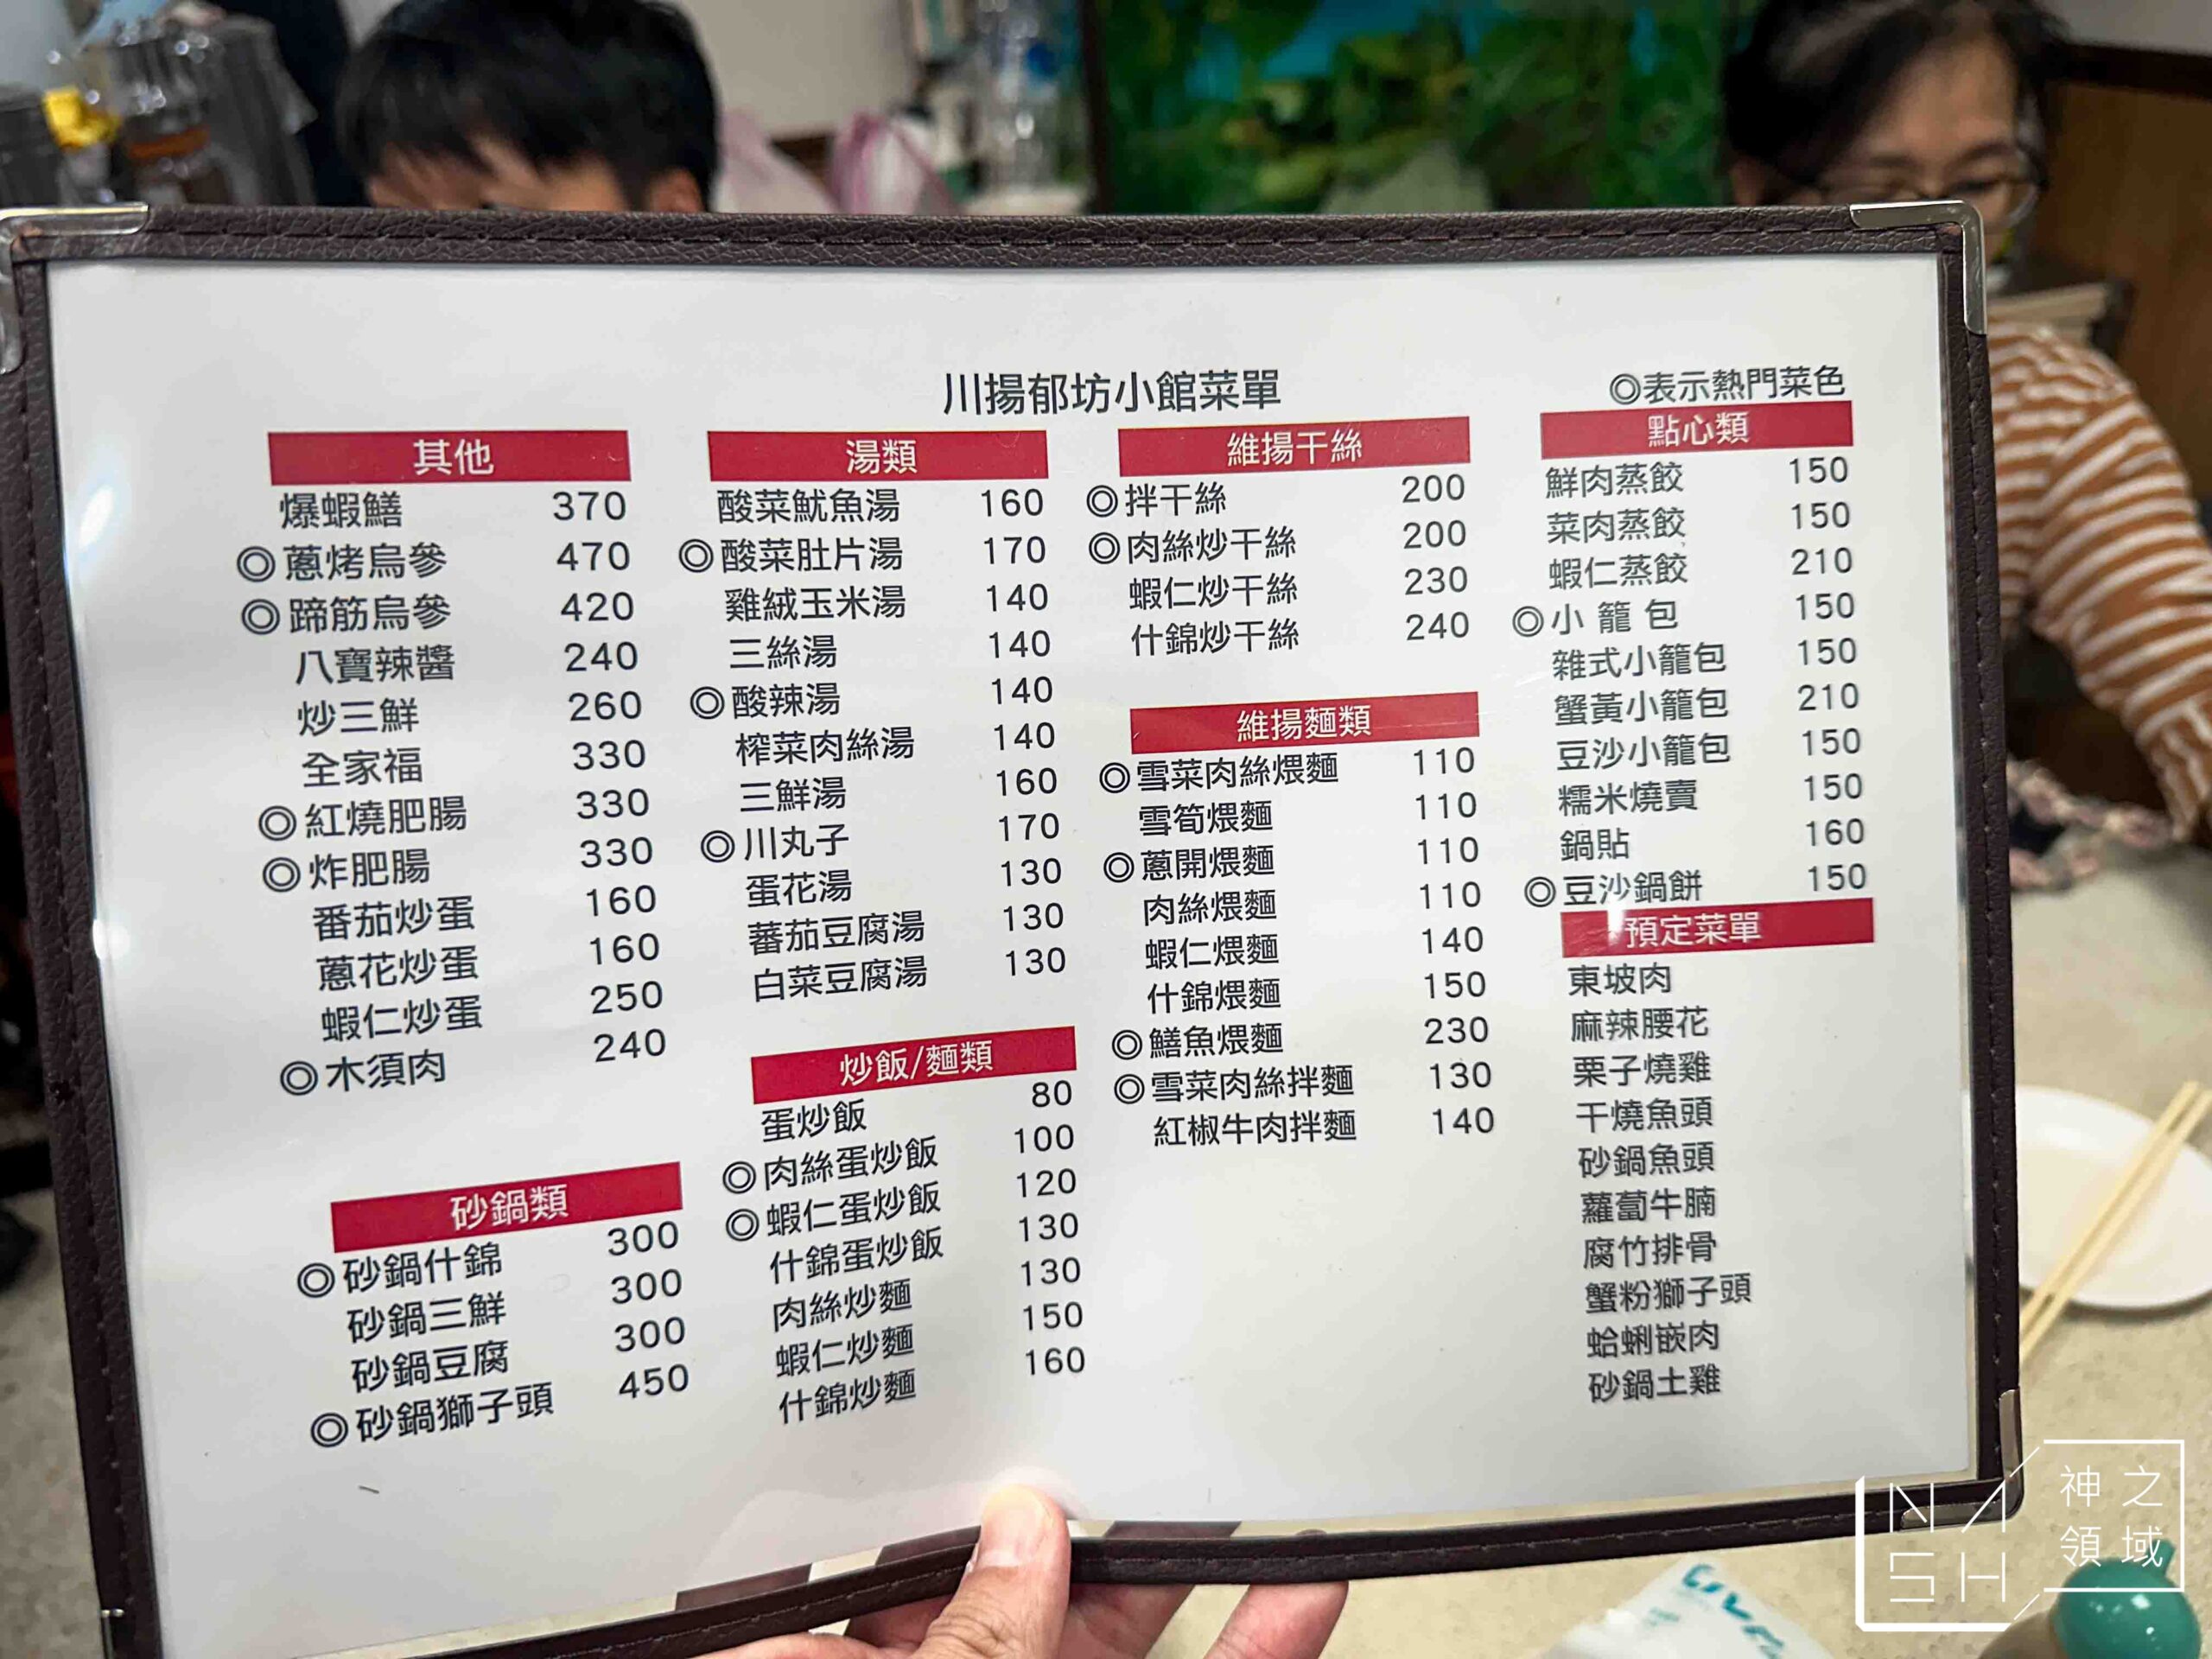 川揚郁坊小館菜單
◎表示熱門菜色
其他
爆蝦鱔 370
◎蔥烤烏參 470
◎蹄筋烏參 420
八寶辣醬 240
炒三鮮 260
全家福 330
◎紅燒肥腸 330
◎炸肥腸 330
番茄炒蛋 160
蔥花炒蛋 160
蝦仁炒蛋 250
◎木須肉 240
砂鍋類
◎砂鍋什錦 300
砂鍋三鮮 300
砂鍋豆腐 300
◎砂鍋獅子頭 450
湯類
酸菜魷魚湯 160
◎酸菜肚片湯 170
雞絨玉米湯 140
三絲湯 140
◎酸辣湯 140
榨菜肉絲湯 140
三鮮湯 160
◎川丸子 170
蛋花湯 130
蕃茄豆腐湯 130
白菜豆腐湯 130
炒飯/麵類
蛋炒飯 80
◎肉絲蛋炒飯 100
◎蝦仁蛋炒飯 120
什錦蛋炒飯 130
肉絲炒麵 130
蝦仁炒麵 150
什錦炒麵 160
維揚干絲
◎拌干絲 200
◎肉絲炒干絲 200
蝦仁炒干絲 230
什錦炒干絲 240
維揚麵類
◎雪菜肉絲煨麵 110
雪筍煨麵 110
◎蔥開煨麵 110
肉絲煨麵 110
蝦仁煨麵 140
什錦煨麵 150
◎鱔魚煨麵 230
◎雪菜肉絲拌麵 130
紅椒牛肉拌麵 140
點心類
鮮肉蒸餃 150
菜肉蒸餃 150
蝦仁蒸餃 210
◎小 籠 包 150
雜式小籠包 150
蟹黃小籠包 210
豆沙小籠包 150
糯米燒賣 150
鍋貼 160
◎豆沙鍋餅 150
預定菜單
東坡肉
麻辣腰花
栗子燒雞
干燒魚頭
砂鍋魚頭
蘿蔔牛腩
腐竹排骨
蟹粉獅子頭
蛤蜊嵌肉
砂鍋土雞
NASH
神之
領域